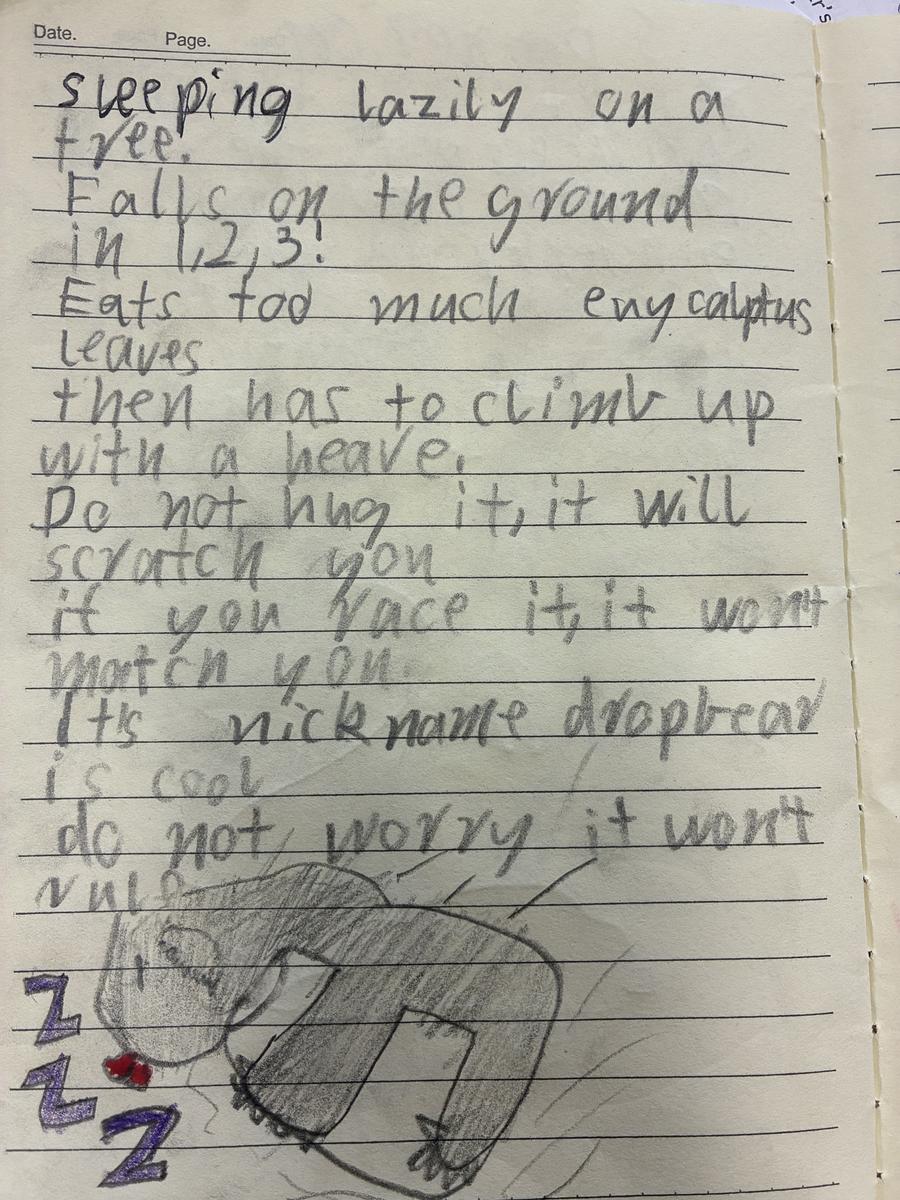 Date.
Page.
sleeping lazily on a
tree.
Falls on the ground
in 1,2,3!
Eats too much enycalptus
leaves
then has to climb up
with a heave.
Do not hug it, it will
scratch you
if you race it, it won't
match you.
It's nickname dropbear
is cool
do not worry it won't
rule
Z
Z
Z